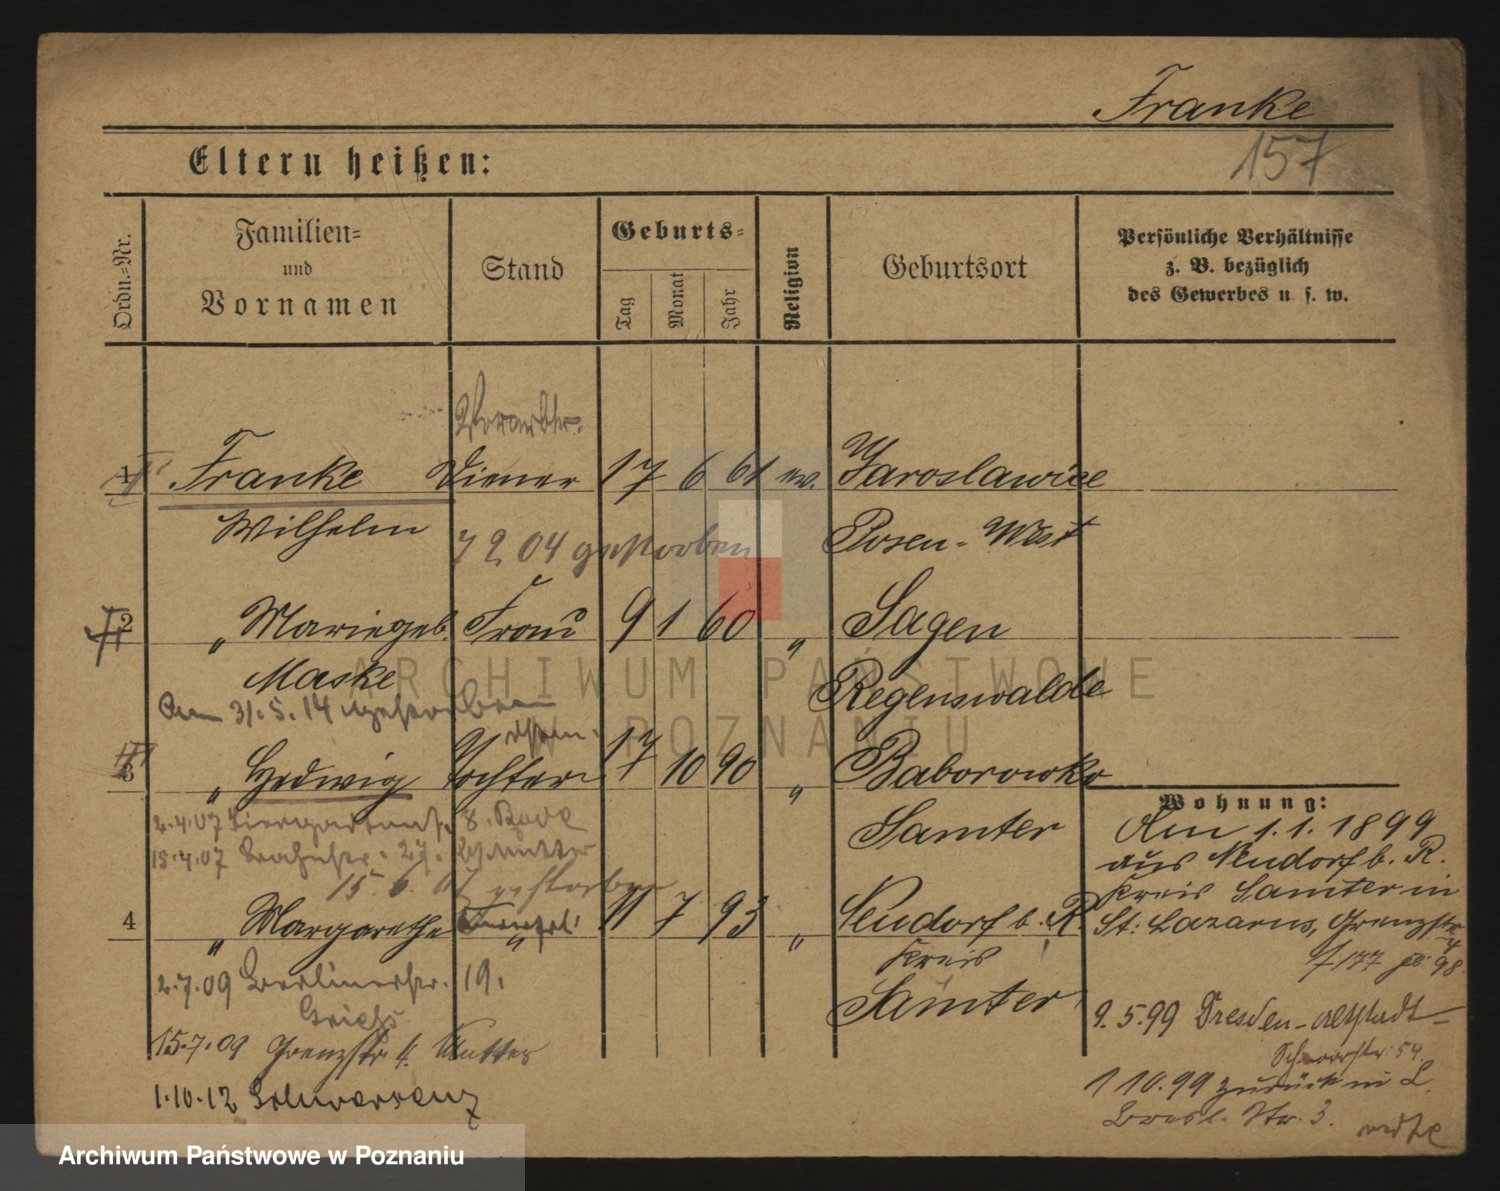 Franke
157
Eltern heißen:
Ordn.=Nr.
Familien=
und
Vornamen
Stand
Geburts=
Tag
Monat
Jahr
Religion
Geburtsort
Persönliche Verhältnisse
z. B. bezüglich
des Gewerbes u. s. w.
Vorarbtr.
1 Franke Diener 17 6 61 ev. Jaroslawice
Wilhelm 7 2 04 gestorben Posen-West
2 " Marie geb. Frau 9 1 60 " Sagen
Maske Regenswalde
Am 31.5.14 gestorben
3 " Hedwig Tochter 17 10 90 " Baborowko
Samter
2.4.07 Tiergartenstr. 8. Bode
15.4.07 27. Mutter
15.6.07 gestorben
4 " Margarethe " 11 7 93 " Neudorf b. R.
Kreis
Samter
2.7.09 Berlinerstr. 19.
15.7.09 Grenzstr. 4. Mutter
1.10.12 Schwersenz
Wohnung:
Am 1.1.1899
aus Neudorf b. R.
Kreis Samter in
St: Lazarus, Grenzstr
4
177 98
9.5.99 Dresden-Altstadt
54.
1 10.99 zurück in L.
Bresl. Str. 3.
ARCHIWUM PAŃSTWOWE
W POZNANIU
Archiwum Państwowe w Poznaniu